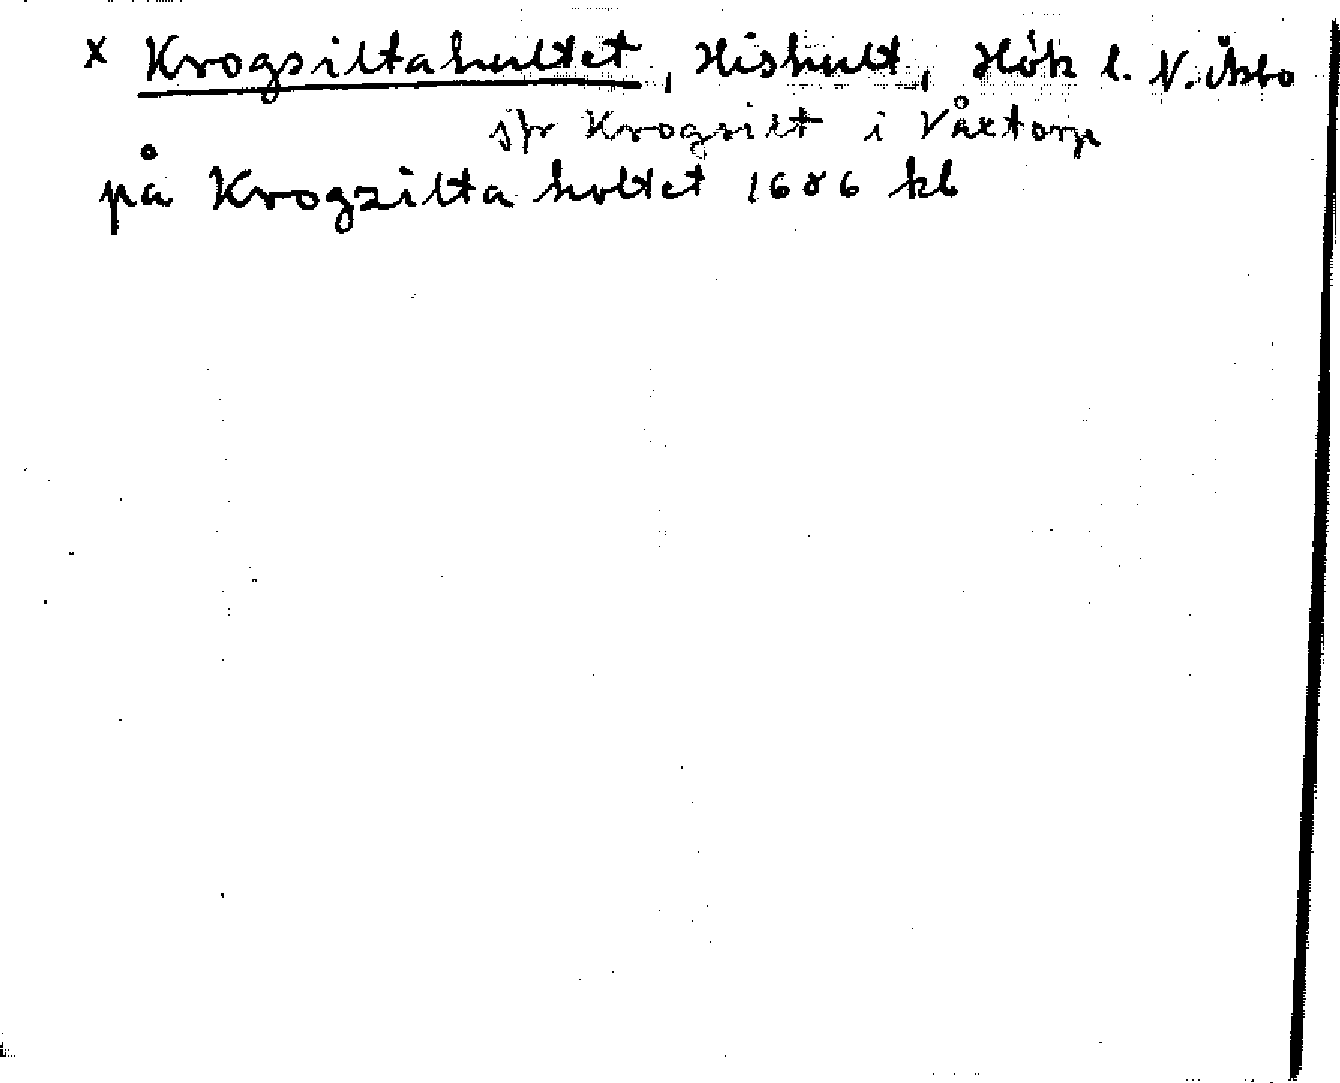 x Krogsiltahultet, Hishult, Hök l. N. Åsbo
spr Krogsilt i Våxtorp
på Krogzilta holtet 1686 kb